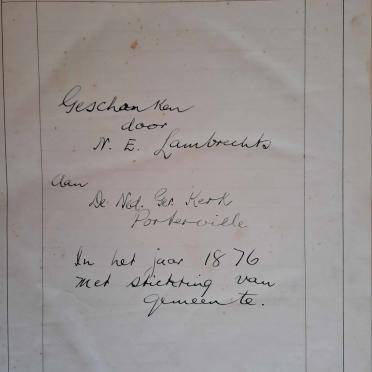 Geschonken
door
N. E. Lambrechts
aan
De Ned. Ger. Kerk
Porterville
In het jaar 1876
met stichting van
gemeente.